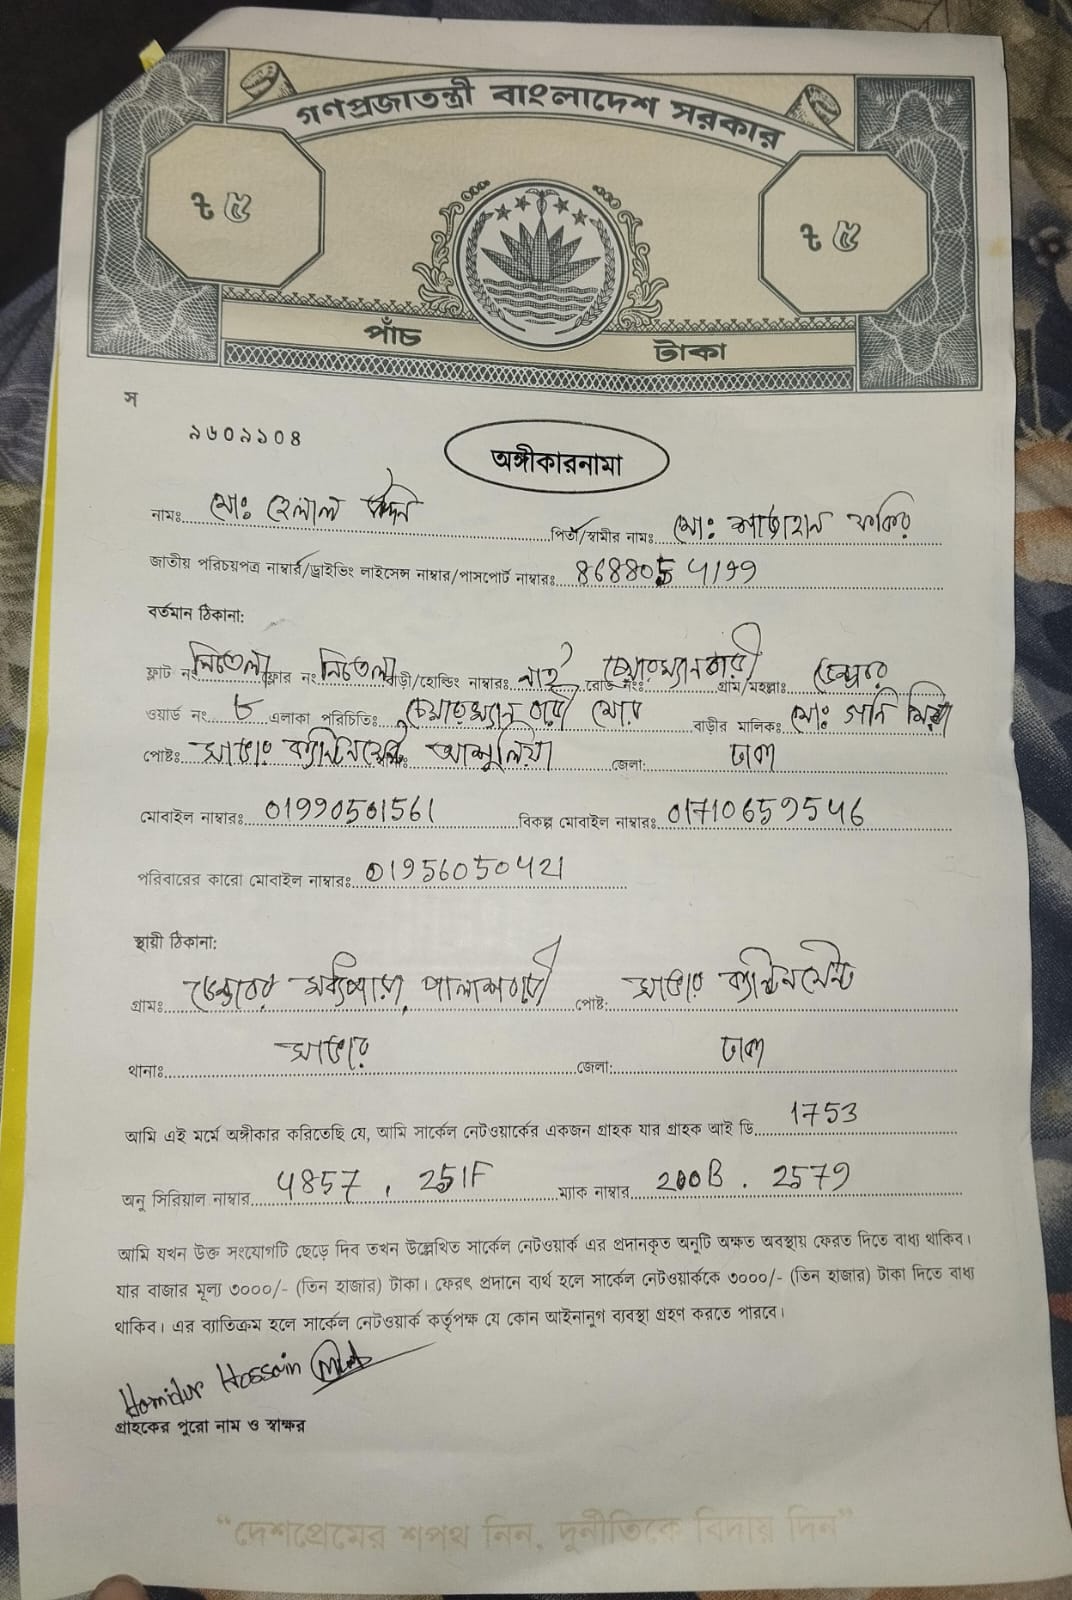 গণপ্রজাতন্ত্রী বাংলাদেশ সরকার
৳ ৫
৳ ৫
পাঁচ টাকা
স
৯৬০৯১০৪
অঙ্গীকারনামা
নামঃ মোঃ হেলাল উদ্দিন পিতা/স্বামীর নামঃ মোঃ শাজাহান ফকির
জাতীয় পরিচয়পত্র নাম্বার/ড্রাইভিং লাইসেন্স নাম্বার/পাসপোর্ট নাম্বারঃ
বর্তমান ঠিকানা:
ফ্লাট নং নিচতলা ফ্লোর নং নিচতলা বাড়ী/হোল্ডিং নাম্বারঃ নাই রোড নংঃ গ্রাম/মহল্লাঃ
ওয়ার্ড নং ৮ এলাকা পরিচিতিঃ চেয়ারম্যান বাড়ী মোড় বাড়ীর মালিকঃ মোঃ গনি মিয়া
পোষ্টঃ সাভার ক্যান্টনমেন্ট আশুলিয়া জেলা: ঢাকা
মোবাইল নাম্বারঃ 01990501561 বিকল্প মোবাইল নাম্বারঃ 01710659546
পরিবারের কারো মোবাইল নাম্বারঃ 01956050421
স্থায়ী ঠিকানা:
গ্রামঃ মধ্যপাড়া, পালাশবাড়ী পোষ্ট: সাভার ক্যান্টনমেন্ট
থানাঃ সাভার জেলা: ঢাকা
আমি এই মর্মে অঙ্গীকার করিতেছি যে, আমি সার্কেল নেটওয়ার্কের একজন গ্রাহক যার গ্রাহক আই ডি 1753
অনু সিরিয়াল নাম্বার 4857 . 251F ম্যাক নাম্বার 200B . 2579
আমি যখন উক্ত সংযোগটি ছেড়ে দিব তখন উল্লেখিত সার্কেল নেটওয়ার্ক এর প্রদানকৃত অনুটি অক্ষত অবস্থায় ফেরত দিতে বাধ্য থাকিব।
যার বাজার মূল্য ৩০০০/- (তিন হাজার) টাকা। ফেরৎ প্রদানে ব্যর্থ হলে সার্কেল নেটওয়ার্ককে ৩০০০/- (তিন হাজার) টাকা দিতে বাধ্য
থাকিব। এর ব্যতিক্রম হলে সার্কেল নেটওয়ার্ক কর্তৃপক্ষ যে কোন আইনানুগ ব্যবস্থা গ্রহণ করতে পারবে।
Hamidur Hossain
গ্রাহকের পুরো নাম ও স্বাক্ষর
“দেশপ্রেমের শপথ নিন, দুর্নীতিকে বিদায় দিন”